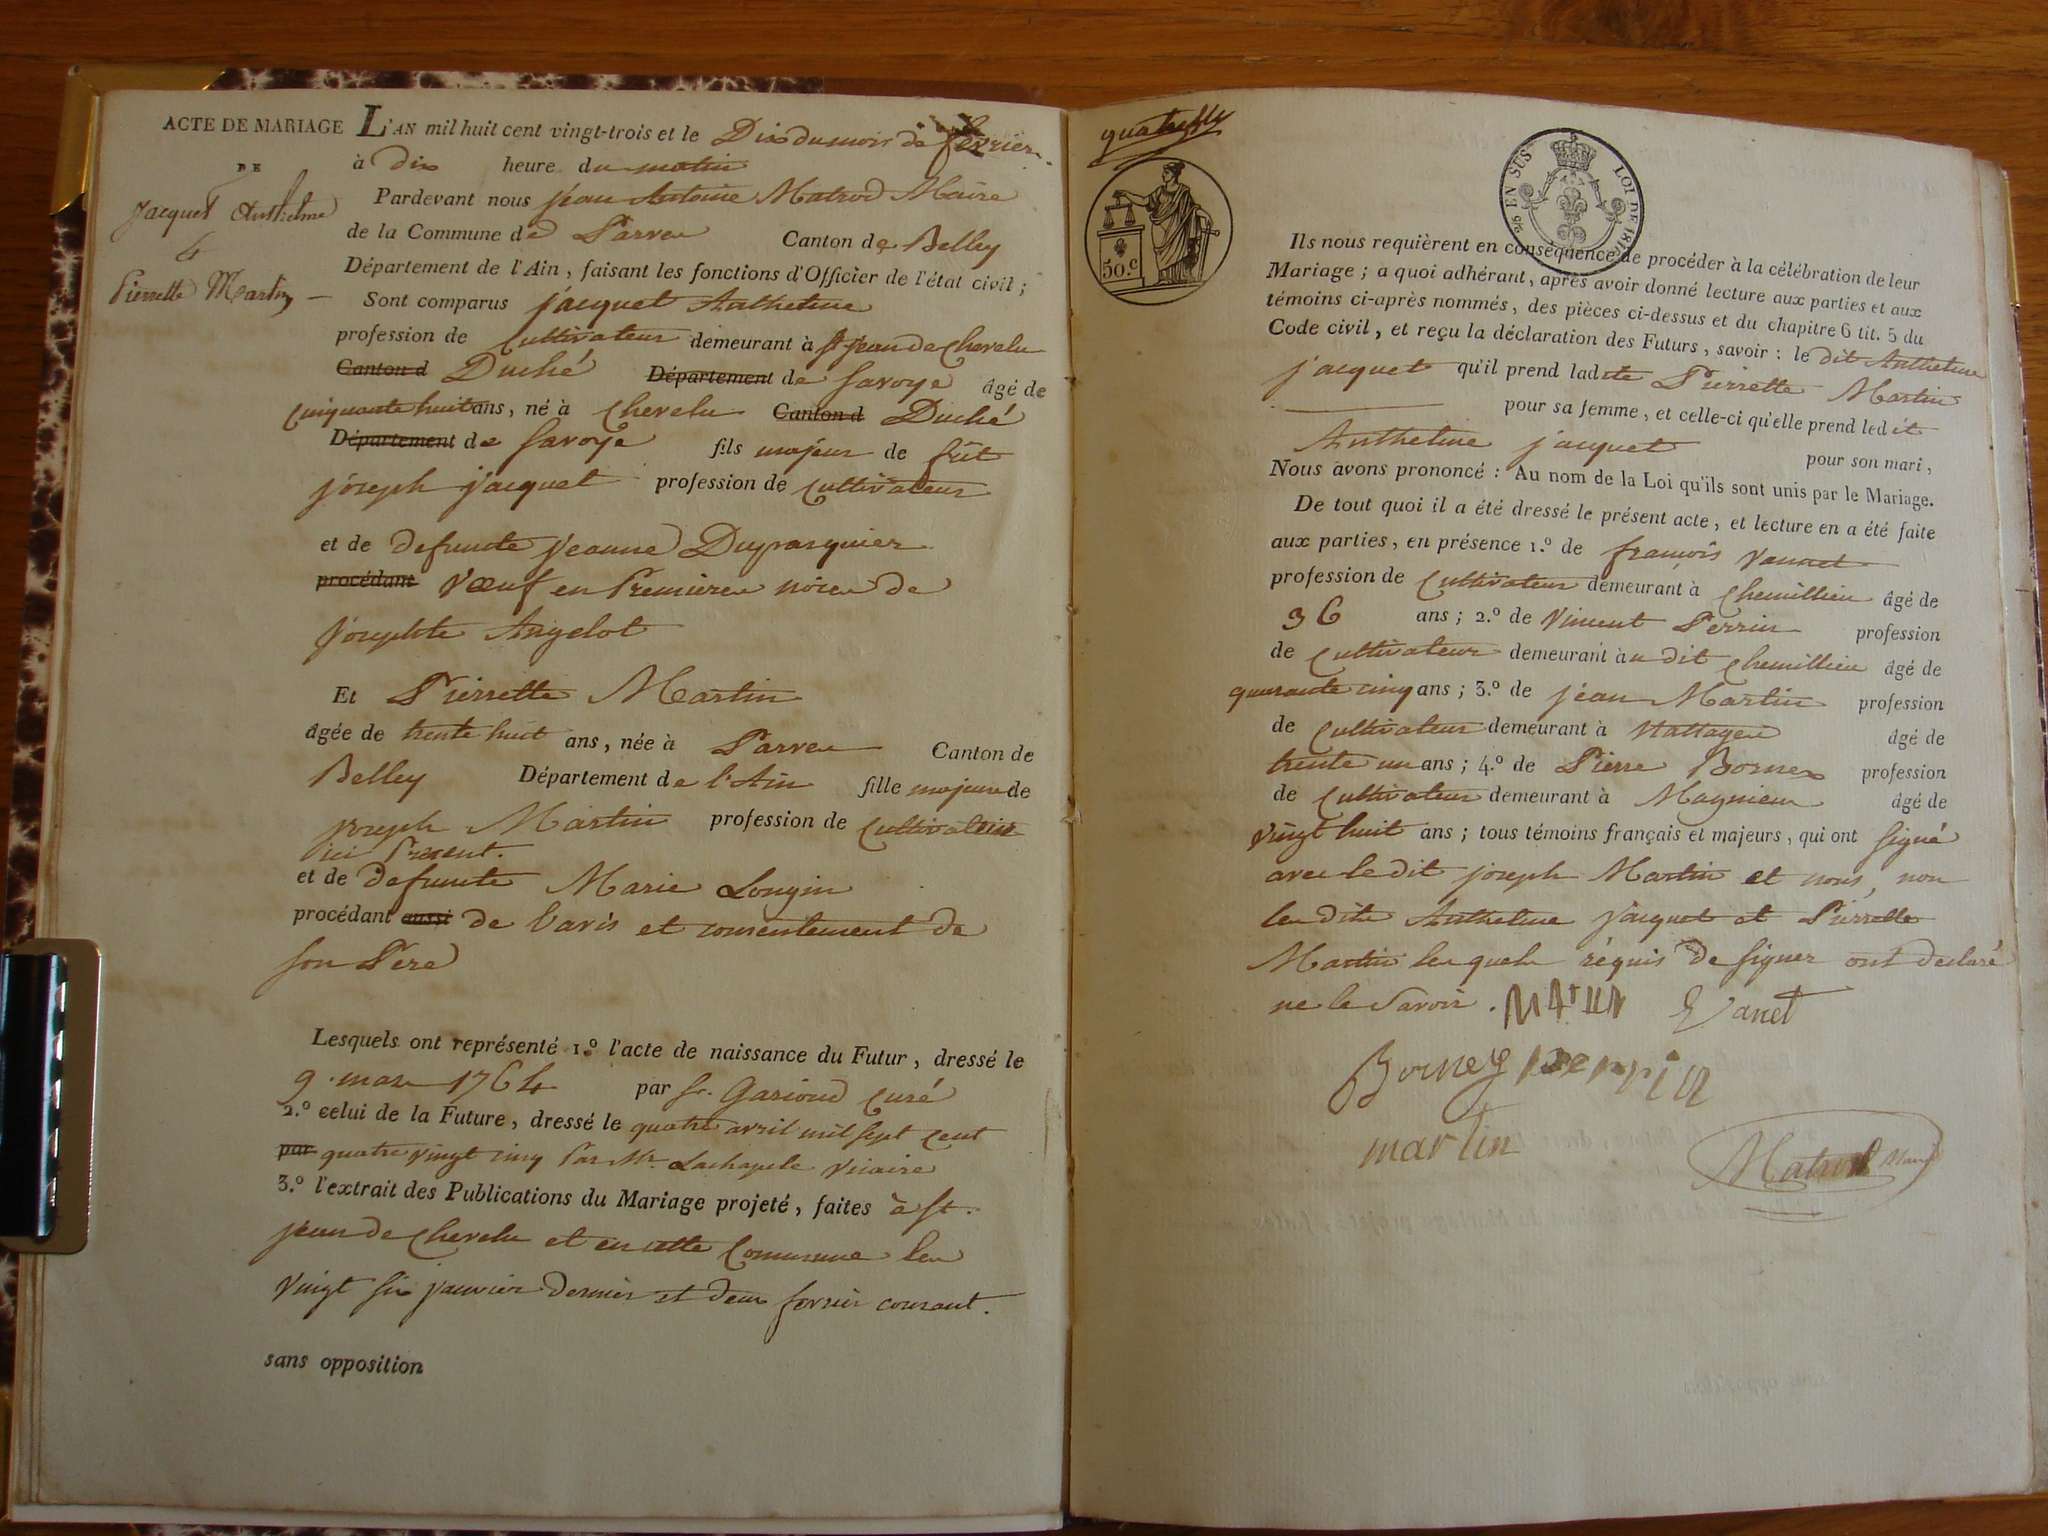 ACTE DE MARIAGE
DE
Jacquet Anthelme
&
Pierrette Martin
L'AN mil huit cent vingt-trois et le Dix du mois de fevrier
à dix heure du matin
Pardevant nous jean Antoine Matrod Maire
de la Commune de Parves Canton de Belley
Département de l'Ain, faisant les fonctions d'Officier de l'état civil ;
Sont comparus jacquet Anthelme
profession de Cultivateur demeurant à St jean de Chevelu
Canton d Duché Département de Savoye âgé de
cinquante huit ans, né à Chevelu Canton d Duché
Département de Savoye fils majeur de fût
joseph jacquet profession de Cultivateur
et de defunte jeanne Dupasquier
procédant vœuf en Premieres nôces de
josephte Angelot
Et Pierrette Martin
âgée de trente huit ans, née à Parves Canton de
Belley Département de l'Ain fille majeure de
joseph Martin profession de Cultivateur
ici Present.
et de defunte Marie Longin
procédant aussi de l'avis et consentement de
son Pere
Lesquels ont représenté 1.º l'acte de naissance du Futur, dressé le
9. mars 1764 par Sr. Garioud curé
2.º celui de la Future, dressé le quatre avril mil sept cent
par quatre vingt cinq Par Mr. Lachapele vicaire
3.º l'extrait des Publications du Mariage projeté, faites à St.
jean de Chevelu et en cette Commune les
vingt six janvier dernier et deux fevrier courant.
sans opposition
50.c
EN SUS LOI DE 1816
Ils nous requièrent en conséquence de procéder à la célébration de leur
Mariage ; a quoi adhérant, après avoir donné lecture aux parties et aux
témoins ci-après nommés, des pièces ci-dessus et du chapitre 6 tit. 5 du
Code civil, et reçu la déclaration des Futurs, savoir : le dit Anthelme
jacquet qu'il prend ladite Pierrette Martin
pour sa femme, et celle-ci qu'elle prend ledit
Anthelme jacquet pour son mari,
Nous avons prononcé : Au nom de la Loi qu'ils sont unis par le Mariage.
De tout quoi il a été dressé le présent acte, et lecture en a été faite
aux parties, en présence 1.º de françois Vannet
profession de Cultivateur demeurant à Chemillieu âgé de
36 ans ; 2.º de Vincent Perrin profession
de Cultivateur demeurant au dit Chemillieu âgé de
quarante cinq ans ; 3.º de jean Martin profession
de Cultivateur demeurant à Nattages âgé de
trente un ans ; 4.º de Pierre Bornex profession
de Cultivateur demeurant à Magnieu âgé de
vingt huit ans ; tous témoins français et majeurs, qui ont signé
avec le dit joseph Martin et nous, non
les dits Anthelme jacquet et Pierrette
Martin les quels réquis de signer ont declaré
ne le savoir. Vanet
Bornex perrin
martin
Matrod Maire